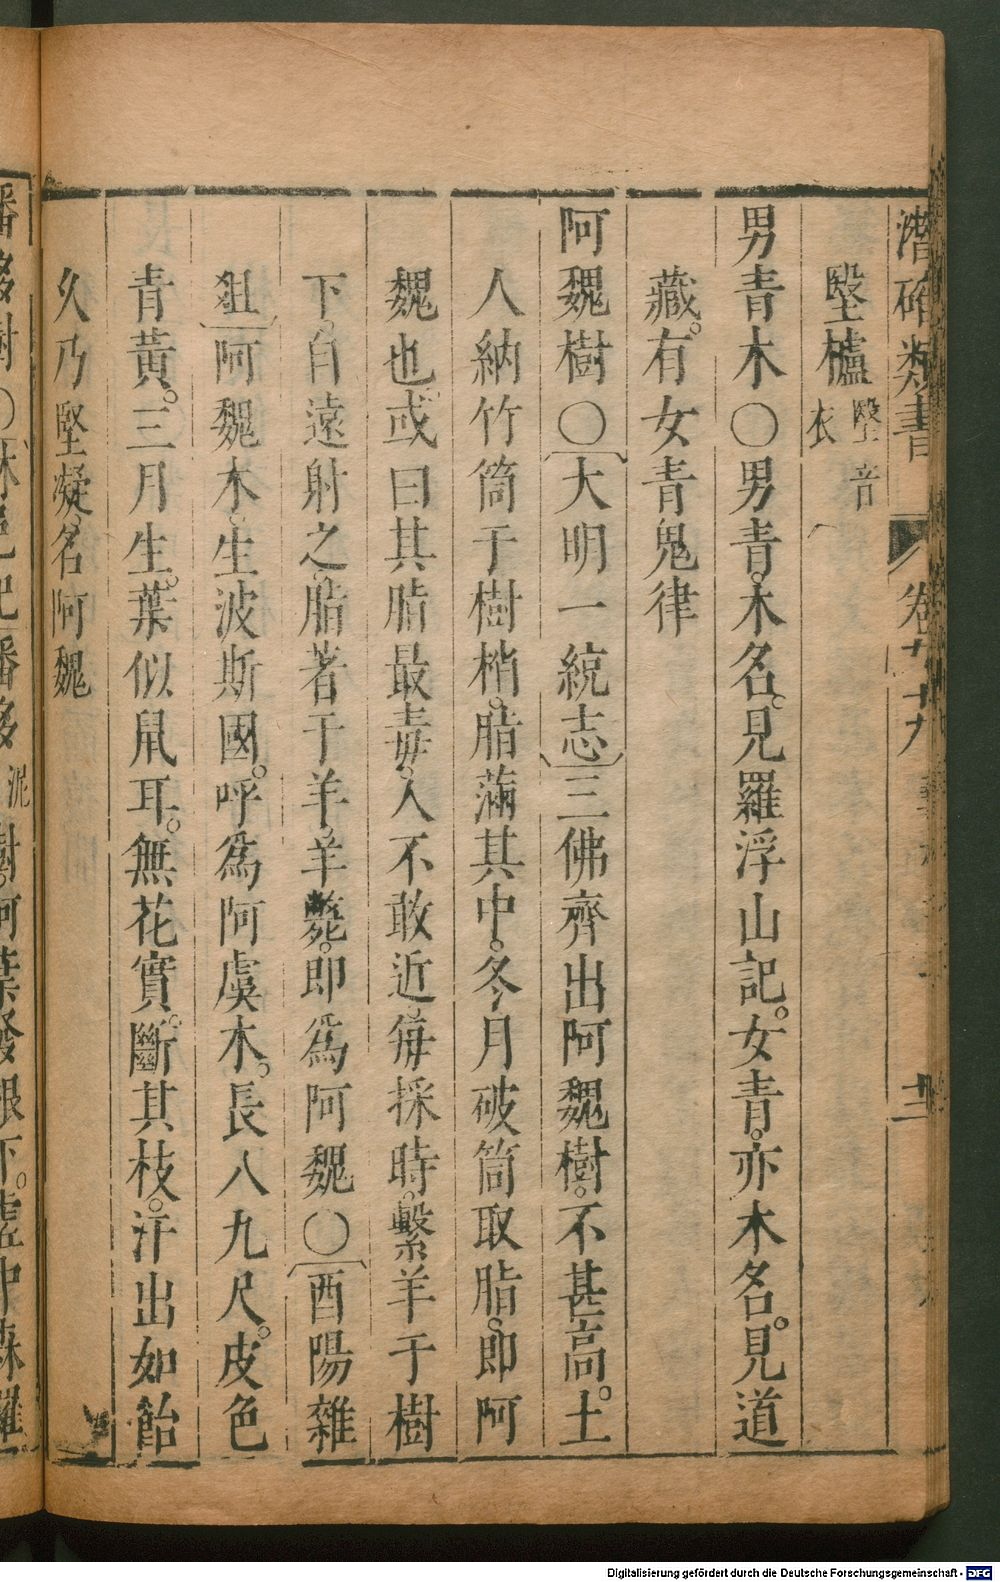 潛確類書 卷九十九 十二
堅櫨 堅音衣
男青木〇男青木名見羅浮山記女青亦木名見道
藏有女青鬼律
阿魏樹〇大明一統志三佛齊出阿魏樹不甚高土
人納竹筒于樹梢脂滿其中冬月破筒取脂即阿
魏也或曰其脂最毒人不敢近每採時繫羊于樹
下自遠射之脂著于羊羊斃即為阿魏〇酉陽雜
俎阿魏木生波斯國呼為阿虞木長八九尺皮色
青黃三月生葉似鼠耳無花實斷其枝汁出如飴
久乃堅凝名阿魏
Digitalisierung gefördert durch die Deutsche Forschungsgemeinschaft - DFG